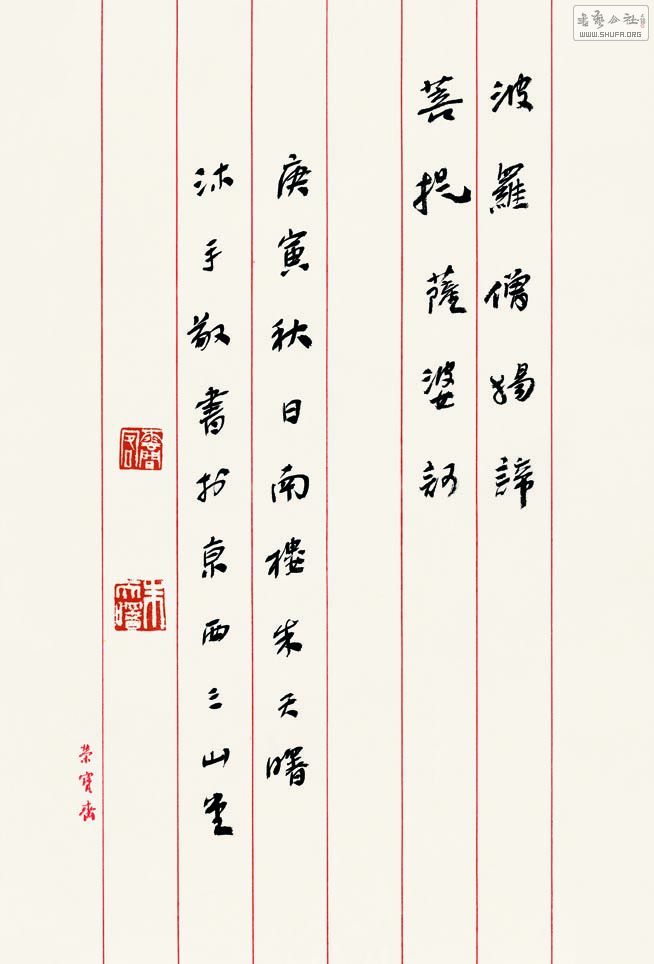 波羅僧揭諦
菩提薩婆訶
庚寅秋日南樓朱天曙
沐手敬書於京西三山堂
朱天曙
榮寶齋
書藝公社
WWW.SHUFA.ORG